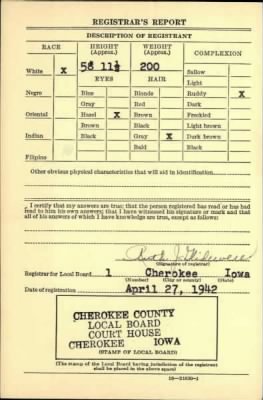 REGISTRAR'S REPORT
DESCRIPTION OF REGISTRANT
RACE HEIGHT (Approx.) WEIGHT (Approx.) COMPLEXION
White X 5' 11½ 200 Sallow
EYES HAIR Light
Negro Blue Blonde Ruddy X
Gray Red Dark
Oriental Hazel X Brown Freckled
Brown Black Light brown
Indian Black Gray X Dark brown
Bald Black
Filipino
Other obvious physical characteristics that will aid in identification
I certify that my answers are true; that the person registered has read or has had
read to him his own answers; that I have witnessed his signature or mark and that
all of his answers of which I have knowledge are true, except as follows:
Ruth J.
(Signature of registrar)
Registrar for Local Board 1 Cherokee Iowa
(Number) (City or county) (State)
Date of registration April 27, 1942
CHEROKEE COUNTY
LOCAL BOARD
COURT HOUSE
CHEROKEE IOWA
(STAMP OF LOCAL BOARD)
(The stamp of the Local Board having jurisdiction of the registrant
shall be placed in the above space)